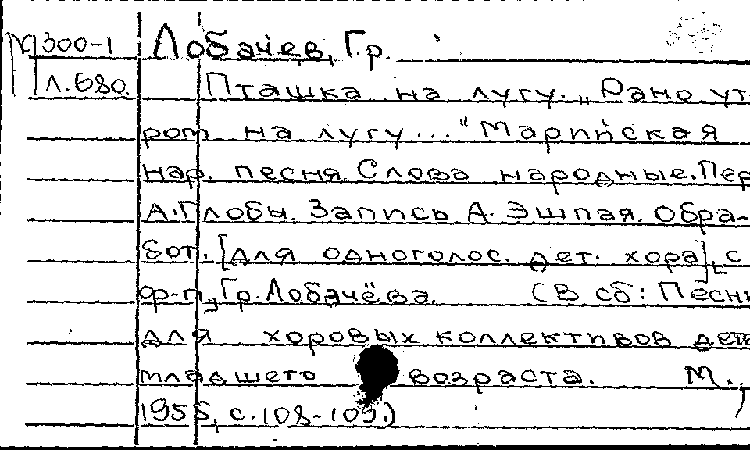 М300-1 Лобачёв, Гр.
Л.680. Пташка на лугу. „Рано ут-
ром на лугу..." Марийская
нар. песня. Слова народные. Пер.
А. Глобы. Запись А. Эшпая. Обра-
бот. [для одноголос. дет. хора], с
ф-п, Гр. Лобачёва. (В сб: Песни
для хоровых коллективов дет
младшего возраста. М.,
1955, с. 108-109.)